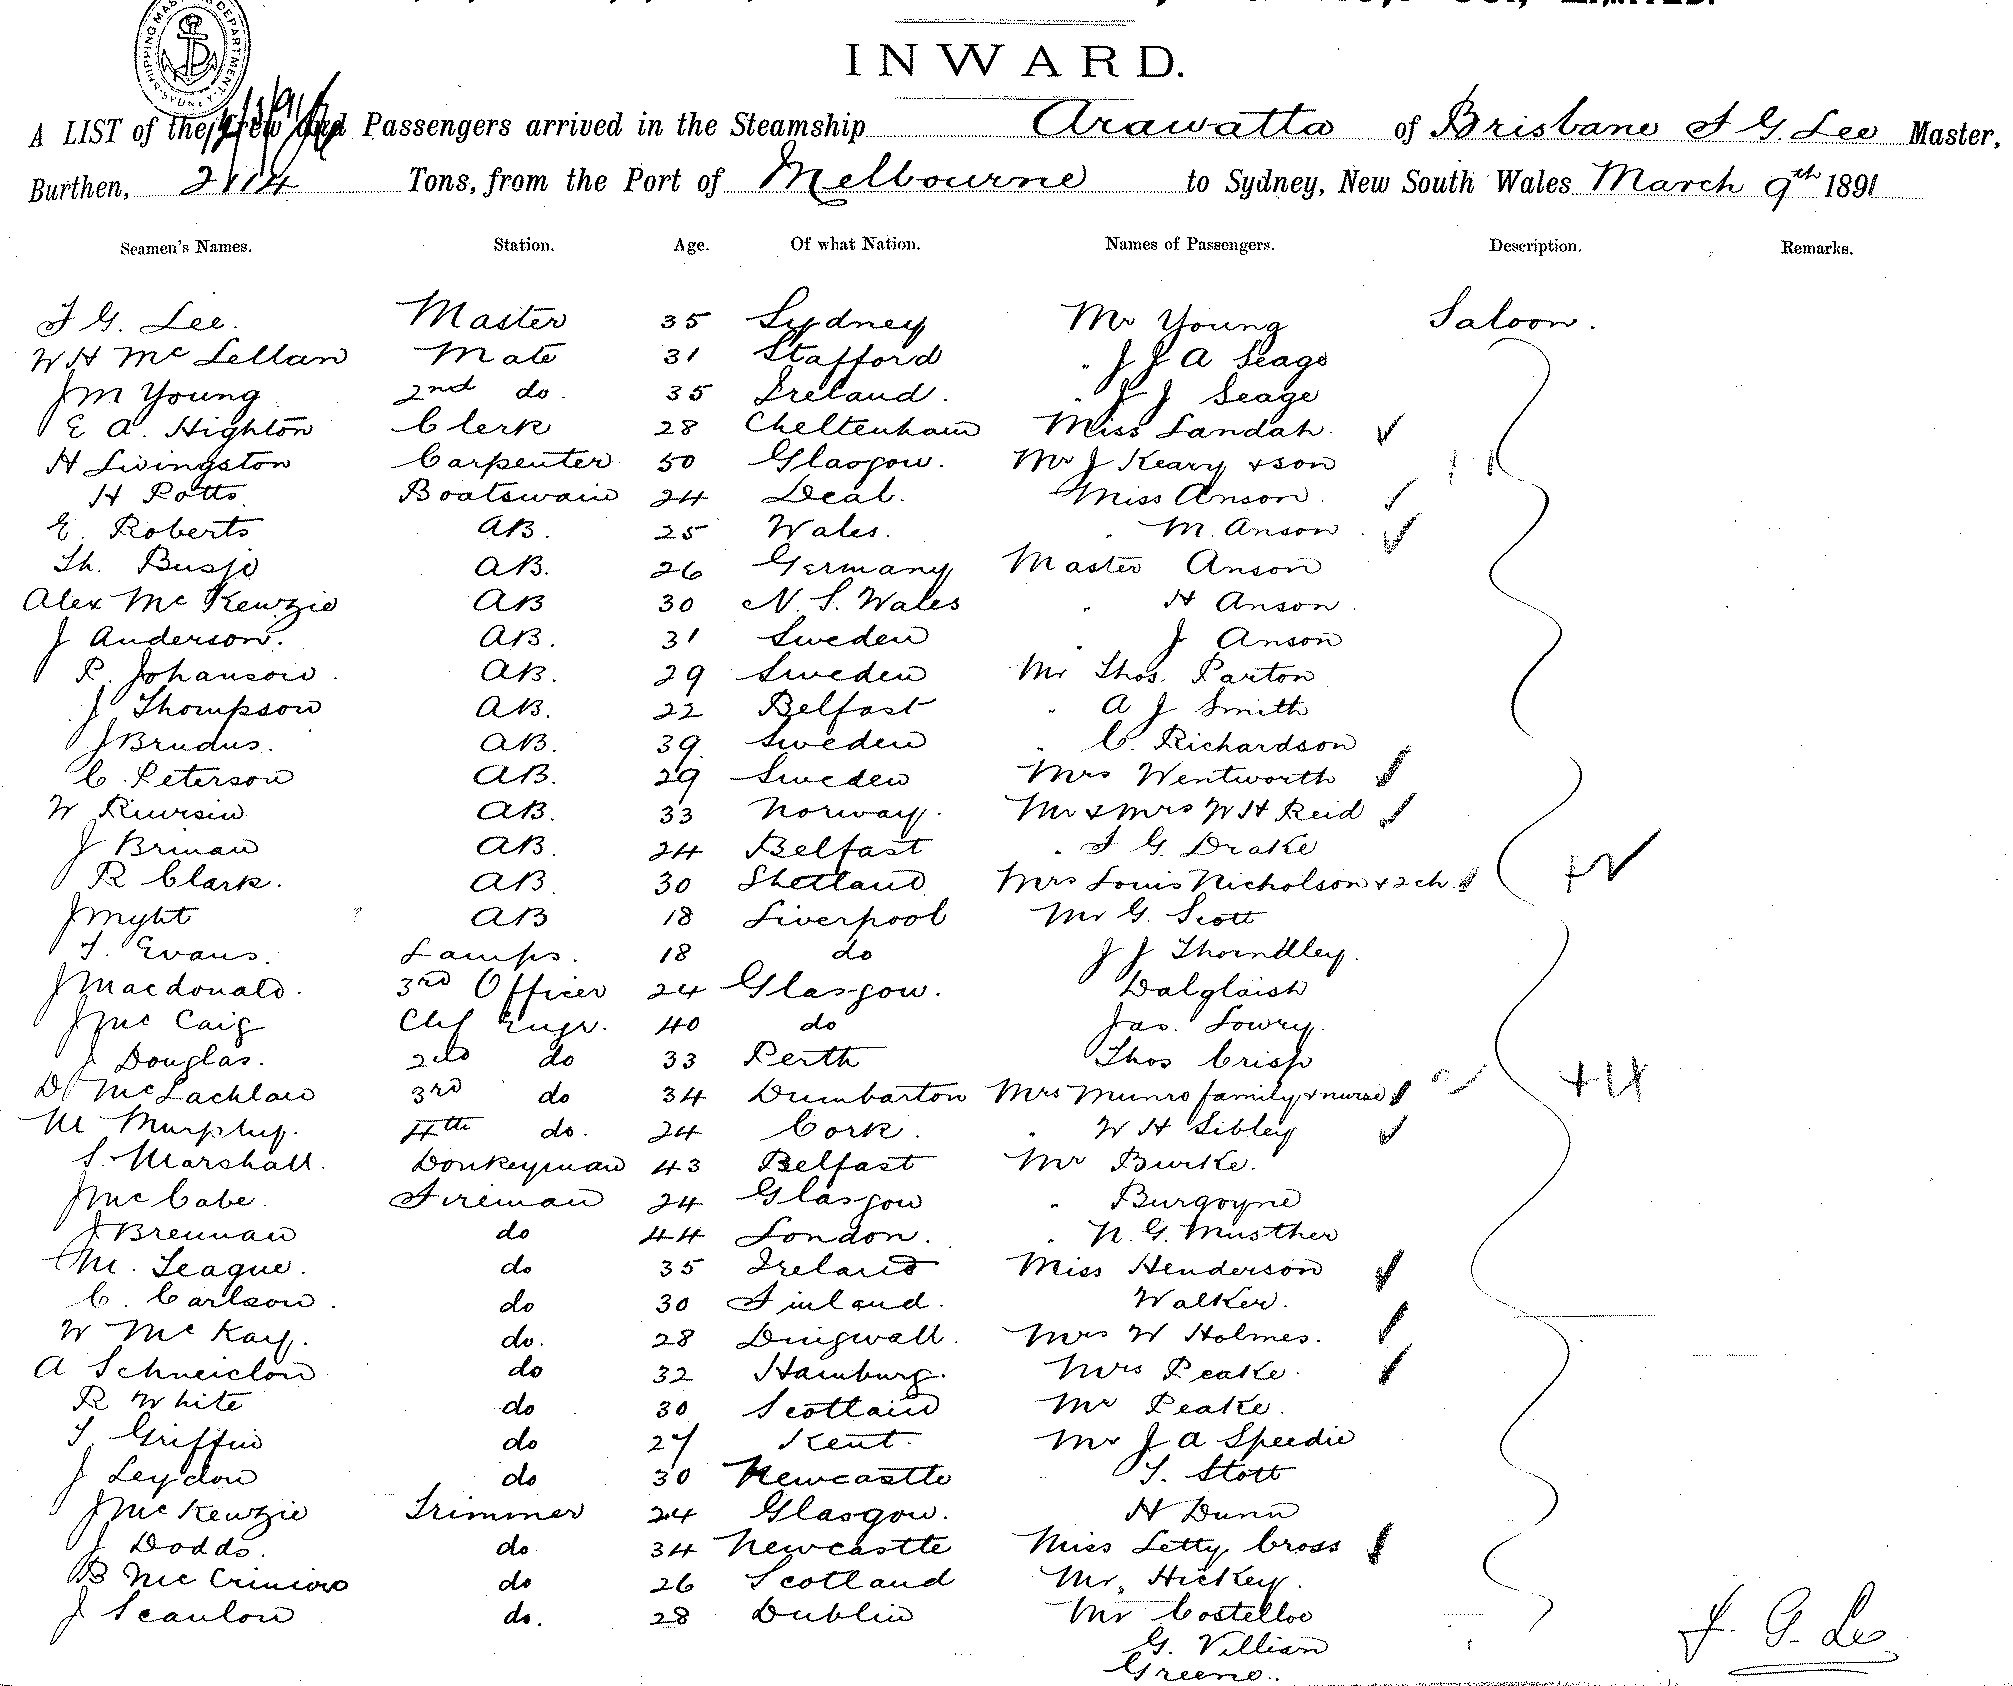 LIMITED.
SHIPPING MASTER DEPARTMENT. SYDNEY.
INWARD.
A LIST of the Crew and Passengers arrived in the Steamship Arawatta of Brisbane J G. Lee Master,
Burthen, 2114 Tons, from the Port of Melbourne to Sydney, New South Wales March 9th 1891
Seamen's Names. Station. Age. Of what Nation. Names of Passengers. Description. Remarks.
J G. Lee. Master 35 Sydney Mr Young Saloon.
W H Mc Lellan Mate 31 Stafford " J J A Seage
J M Young 2nd do. 35 Ireland. " J J Seage
E A. Highton Clerk 28 Cheltenham Miss Landah.
H Livingston Carpenter 50 Glasgow. Mr J Keary + son
H Potts Boatswain 24 Deal. Miss Anson.
E. Roberts AB. 25 Wales. " M. Anson
Th. AB. 26 Germany Master Anson
Alex Mc Kenzie AB 30 N. S. Wales " H Anson
J Anderson. AB. 31 Sweden " J Anson
P. Johanson AB. 29 Sweden Mr Thos. Parton
J Thompson AB. 22 Belfast " A J Smith
J Brudus. AB. 39 Sweden " C. Richardson
C. Peterson AB. 29 Sweden Mrs Wentworth
W AB. 33 Norway. Mr & Mrs W H Reid
J Brinan AB. 24 Belfast " J G. Drake
R Clark. AB. 30 Shetland Mrs Louis Nicholson + 2 ch.
J Myht AB 18 Liverpool Mr G. Scott
T. Evans. Lamps. 18 do J J Thorndley.
J Macdonald. 3rd Officer 24 Glasgow. Dalglaish
J Mc Caig Chf Engr. 40 do Jas. Lowry.
J Douglas. 2nd do 33 Perth Thos Crisp
D McLachlan 3rd do 34 Dumbarton Mrs Munro family + nurse
M Murphy. 4th do. 24 Cork. " W H Sibley
S. Marshall. Donkeyman 43 Belfast Mr Burke.
J Mc Cabe. Fireman 24 Glasgow " Burgoyne
J Brennan do 44 London. " N. G. Musther
M. Teague. do 35 Ireland Miss Henderson
C. Carlson. do 30 Finland. Walker.
W Mc Kay. do. 28 Dingwall. Mrs W Holmes.
A Schneiclon do 32 Hamburg. Mrs Peake.
R White do 30 Scotland Mr Peake.
T Griffin do 27 Kent. Mr J A Speedie
J Leydon do 30 Newcastle T. Stott
J Mc Kenzie Trimmer 24 Glasgow. H Dunn
J Dodds. do 34 Newcastle Miss Letty Cross
B Mc do 26 Scotland Mr. Hickey.
J Scanlon do. 28 Dublin Mr Costelloe
G. Villian
Greene.
J. G. Lee